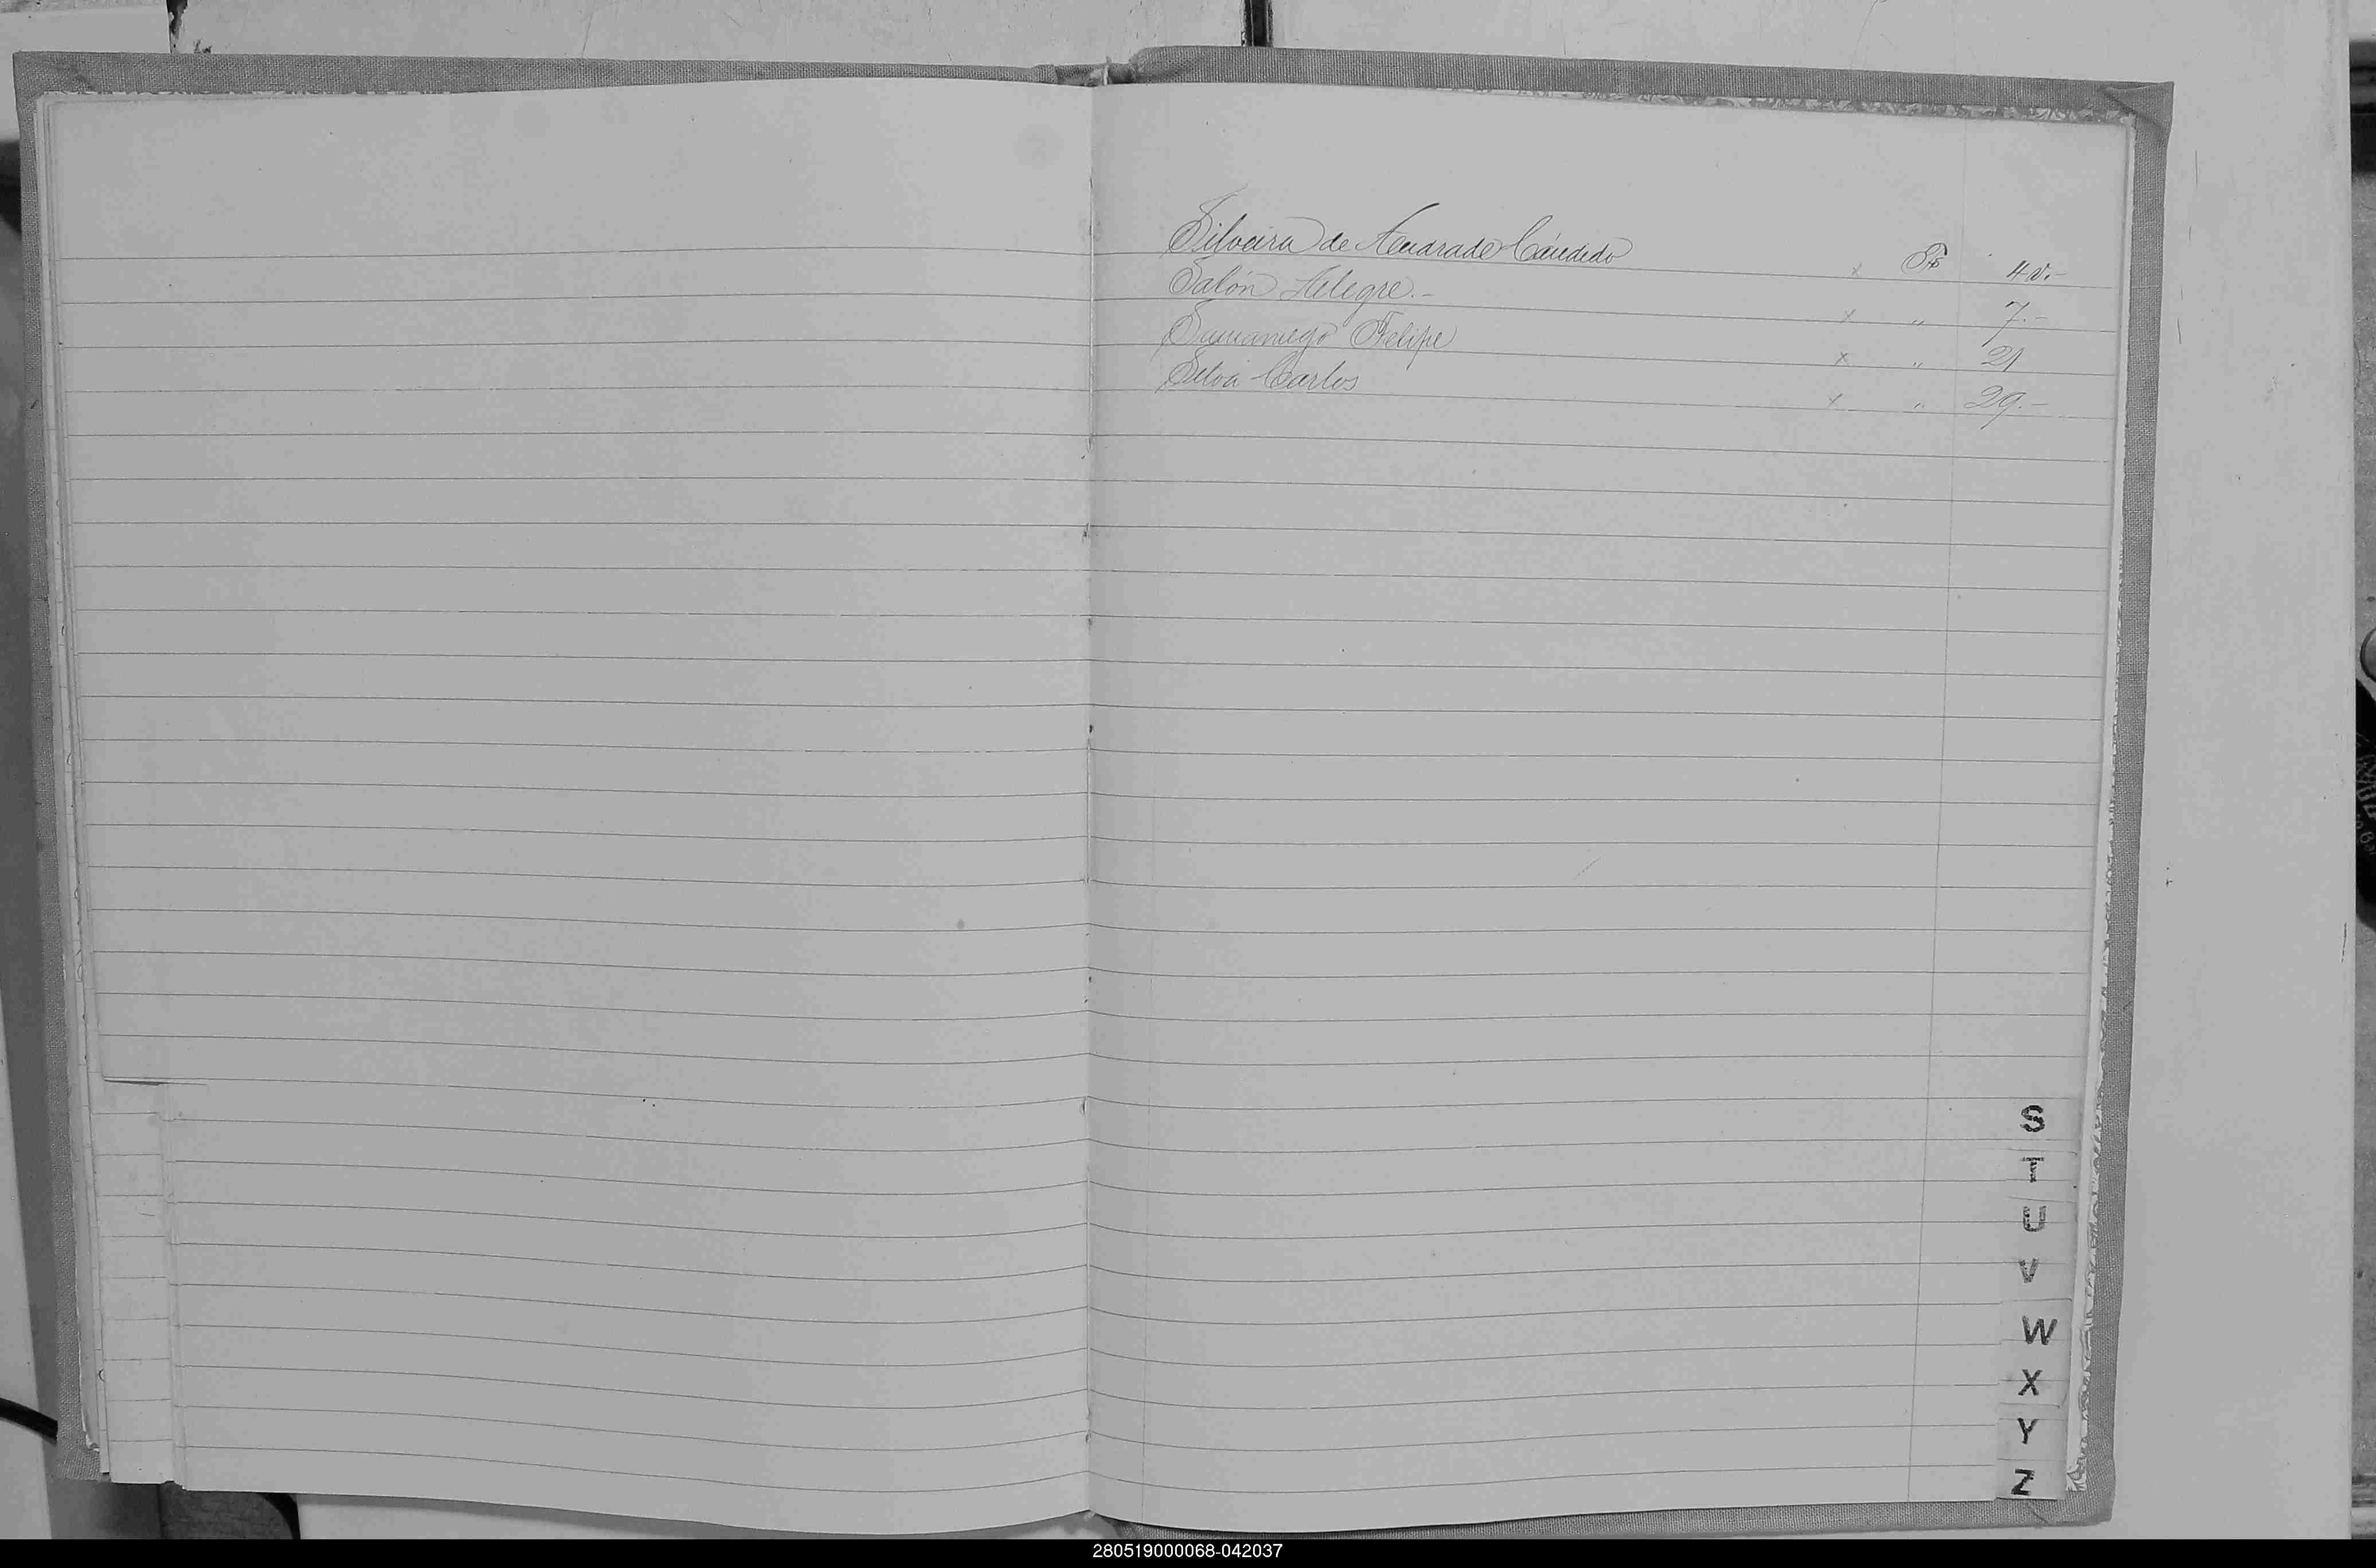 Silveira de Andrade Cándido x Fº 4 v.-
Salón Alegre.- x " 7.-
Samaniego Felipe x " 21
Silva Carlos x " 29.-
S
T
U
V
W
X
Y
Z
280519000068-042037